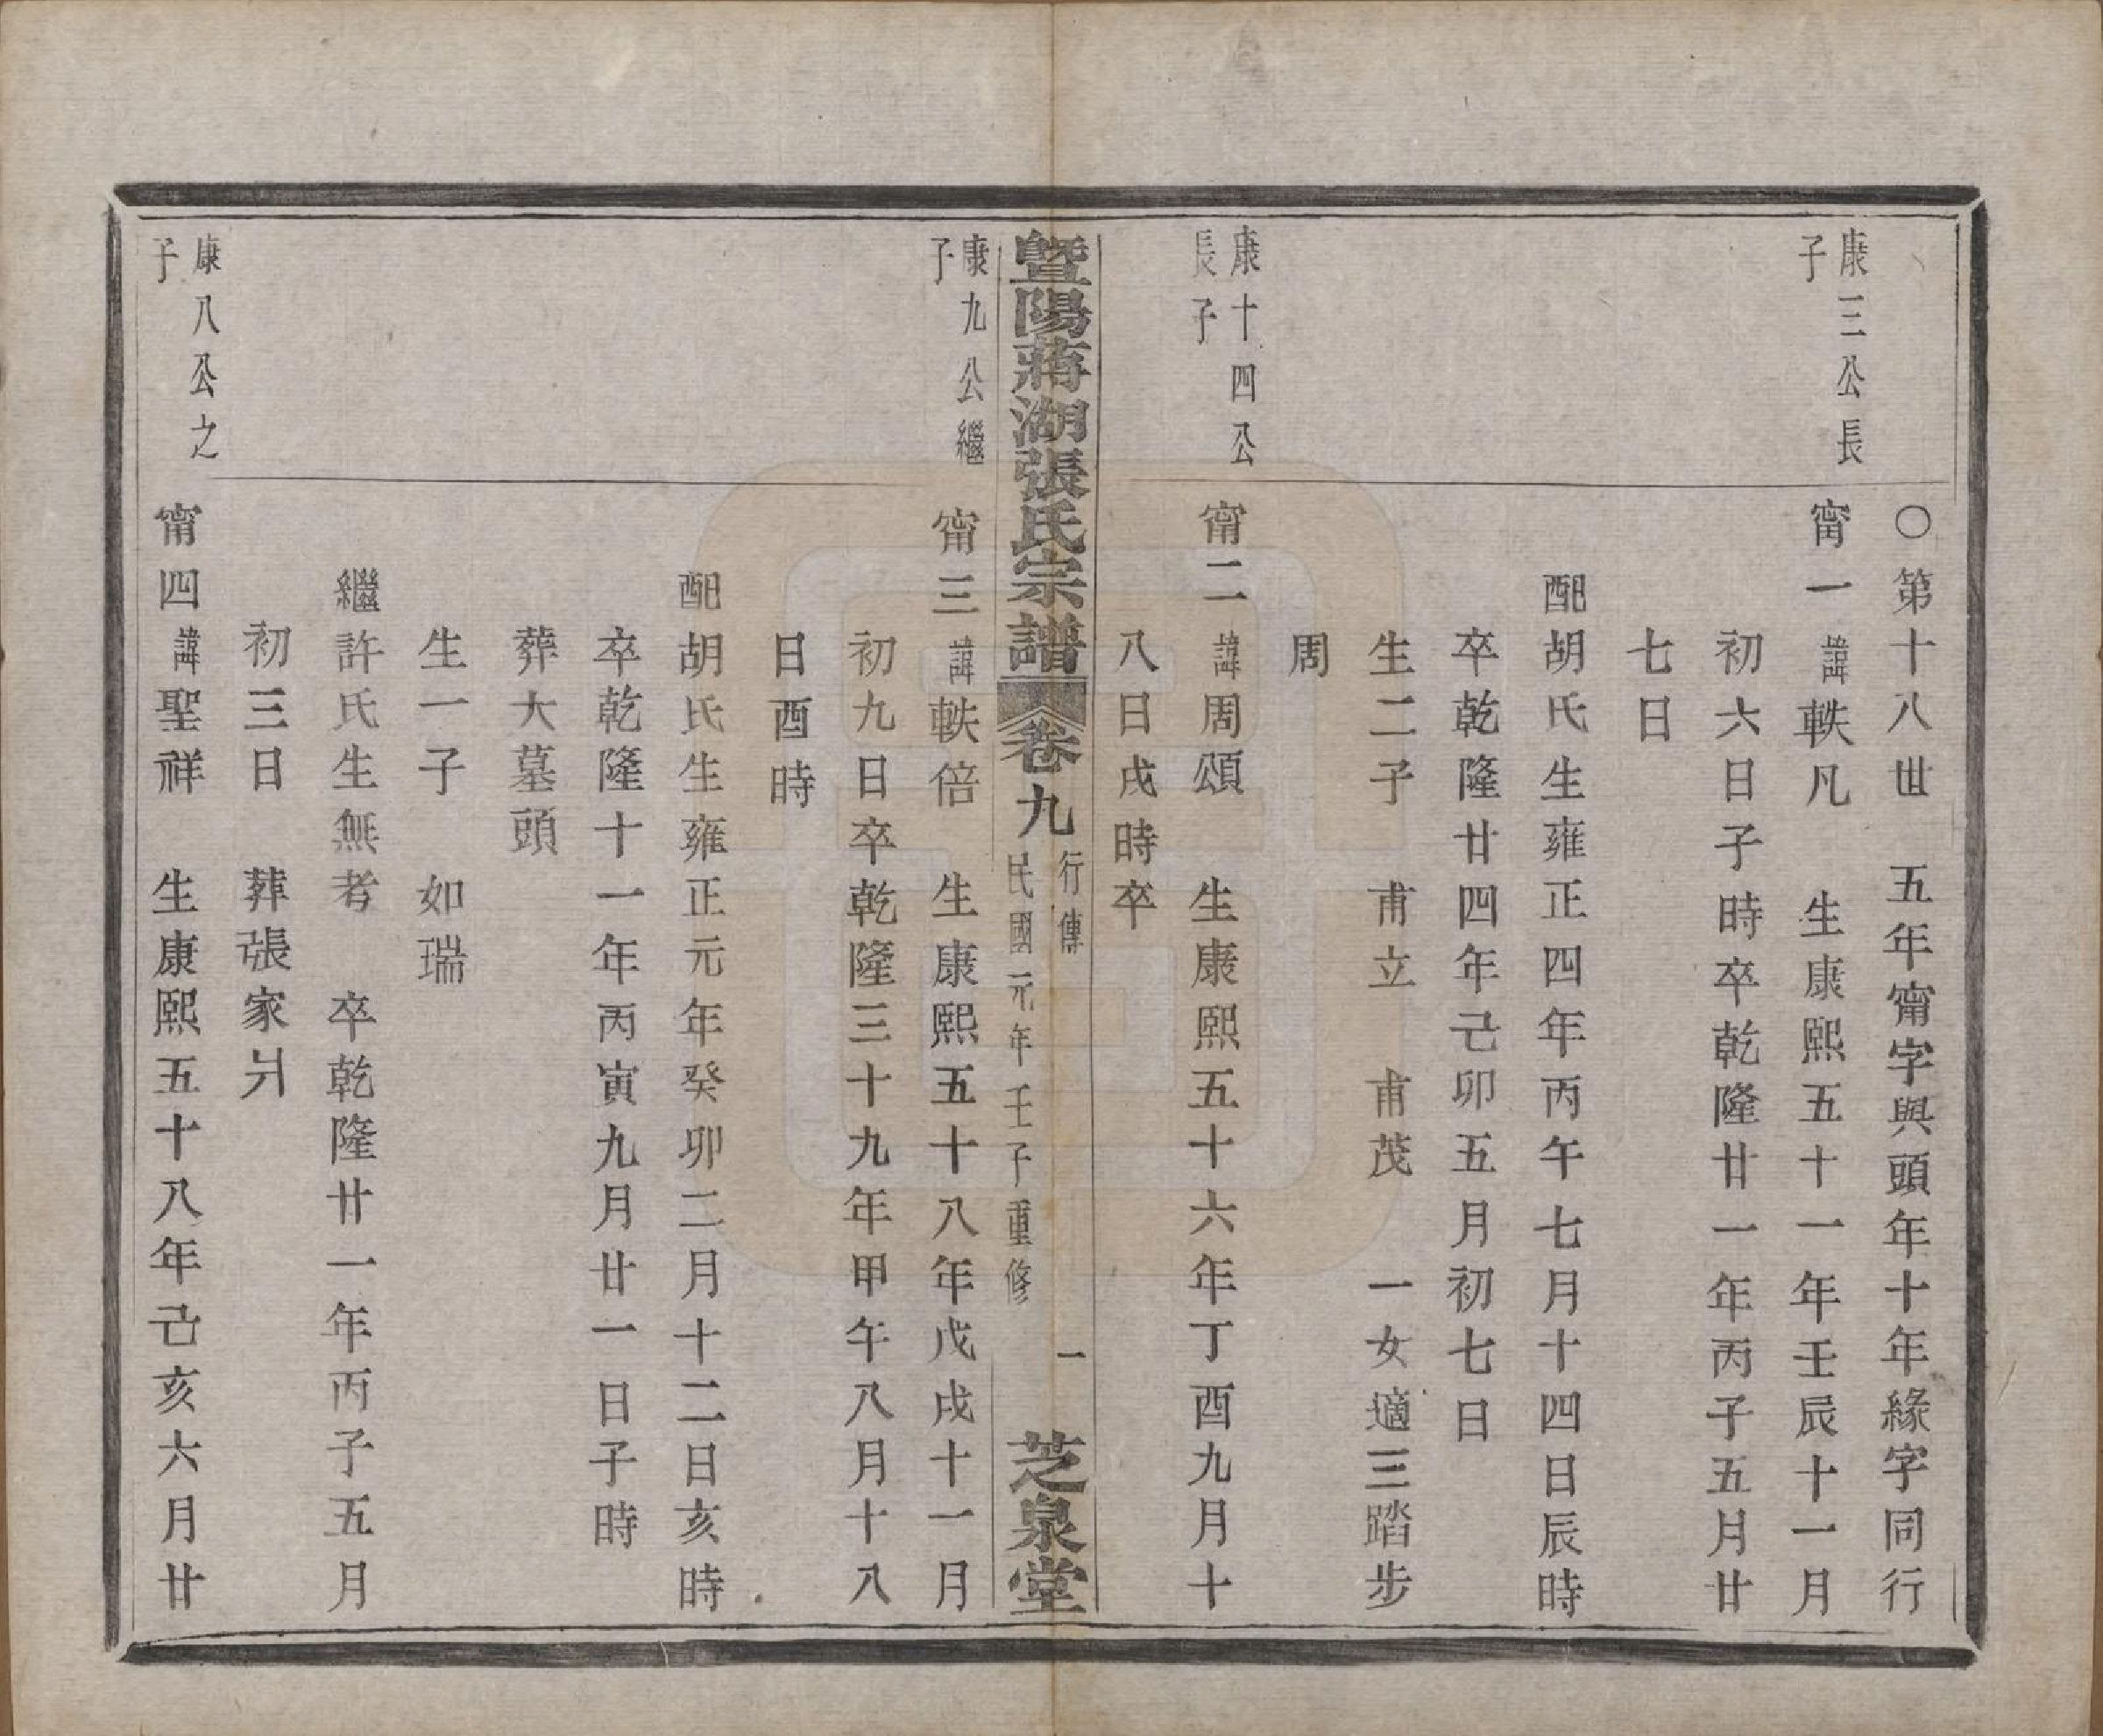 〇第十八世　五年甯字與頭年十年緣字同行
康三公長
子
甯一諱軼凡　生康熙五十一年壬辰十一月
初六日子時卒乾隆廿一年丙子五月廿
七日
配胡氏生雍正四年丙午七月十四日辰時
卒乾隆廿四年己卯五月初七日
生二子　甫立　甫茂　一女適三踏步
周
康十四公
長子
甯二諱周頌　生康熙五十六年丁酉九月十
八日戌時卒
暨陽蔣湖張氏宗譜　卷九　行傳　民國元年壬子重修　一　芝泉堂
康九公繼
子
甯三諱軼倍　生康熙五十八年戊戌十一月
初九日卒乾隆三十九年甲午八月十八
日酉時
配胡氏生雍正元年癸卯二月十二日亥時
卒乾隆十一年丙寅九月廿一日子時
葬大墓頭
生一子　如瑞
繼許氏生無考　卒乾隆廿一年丙子五月
初三日　葬張家爿
康八公之
子
甯四諱聖祥　生康熙五十八年己亥六月廿